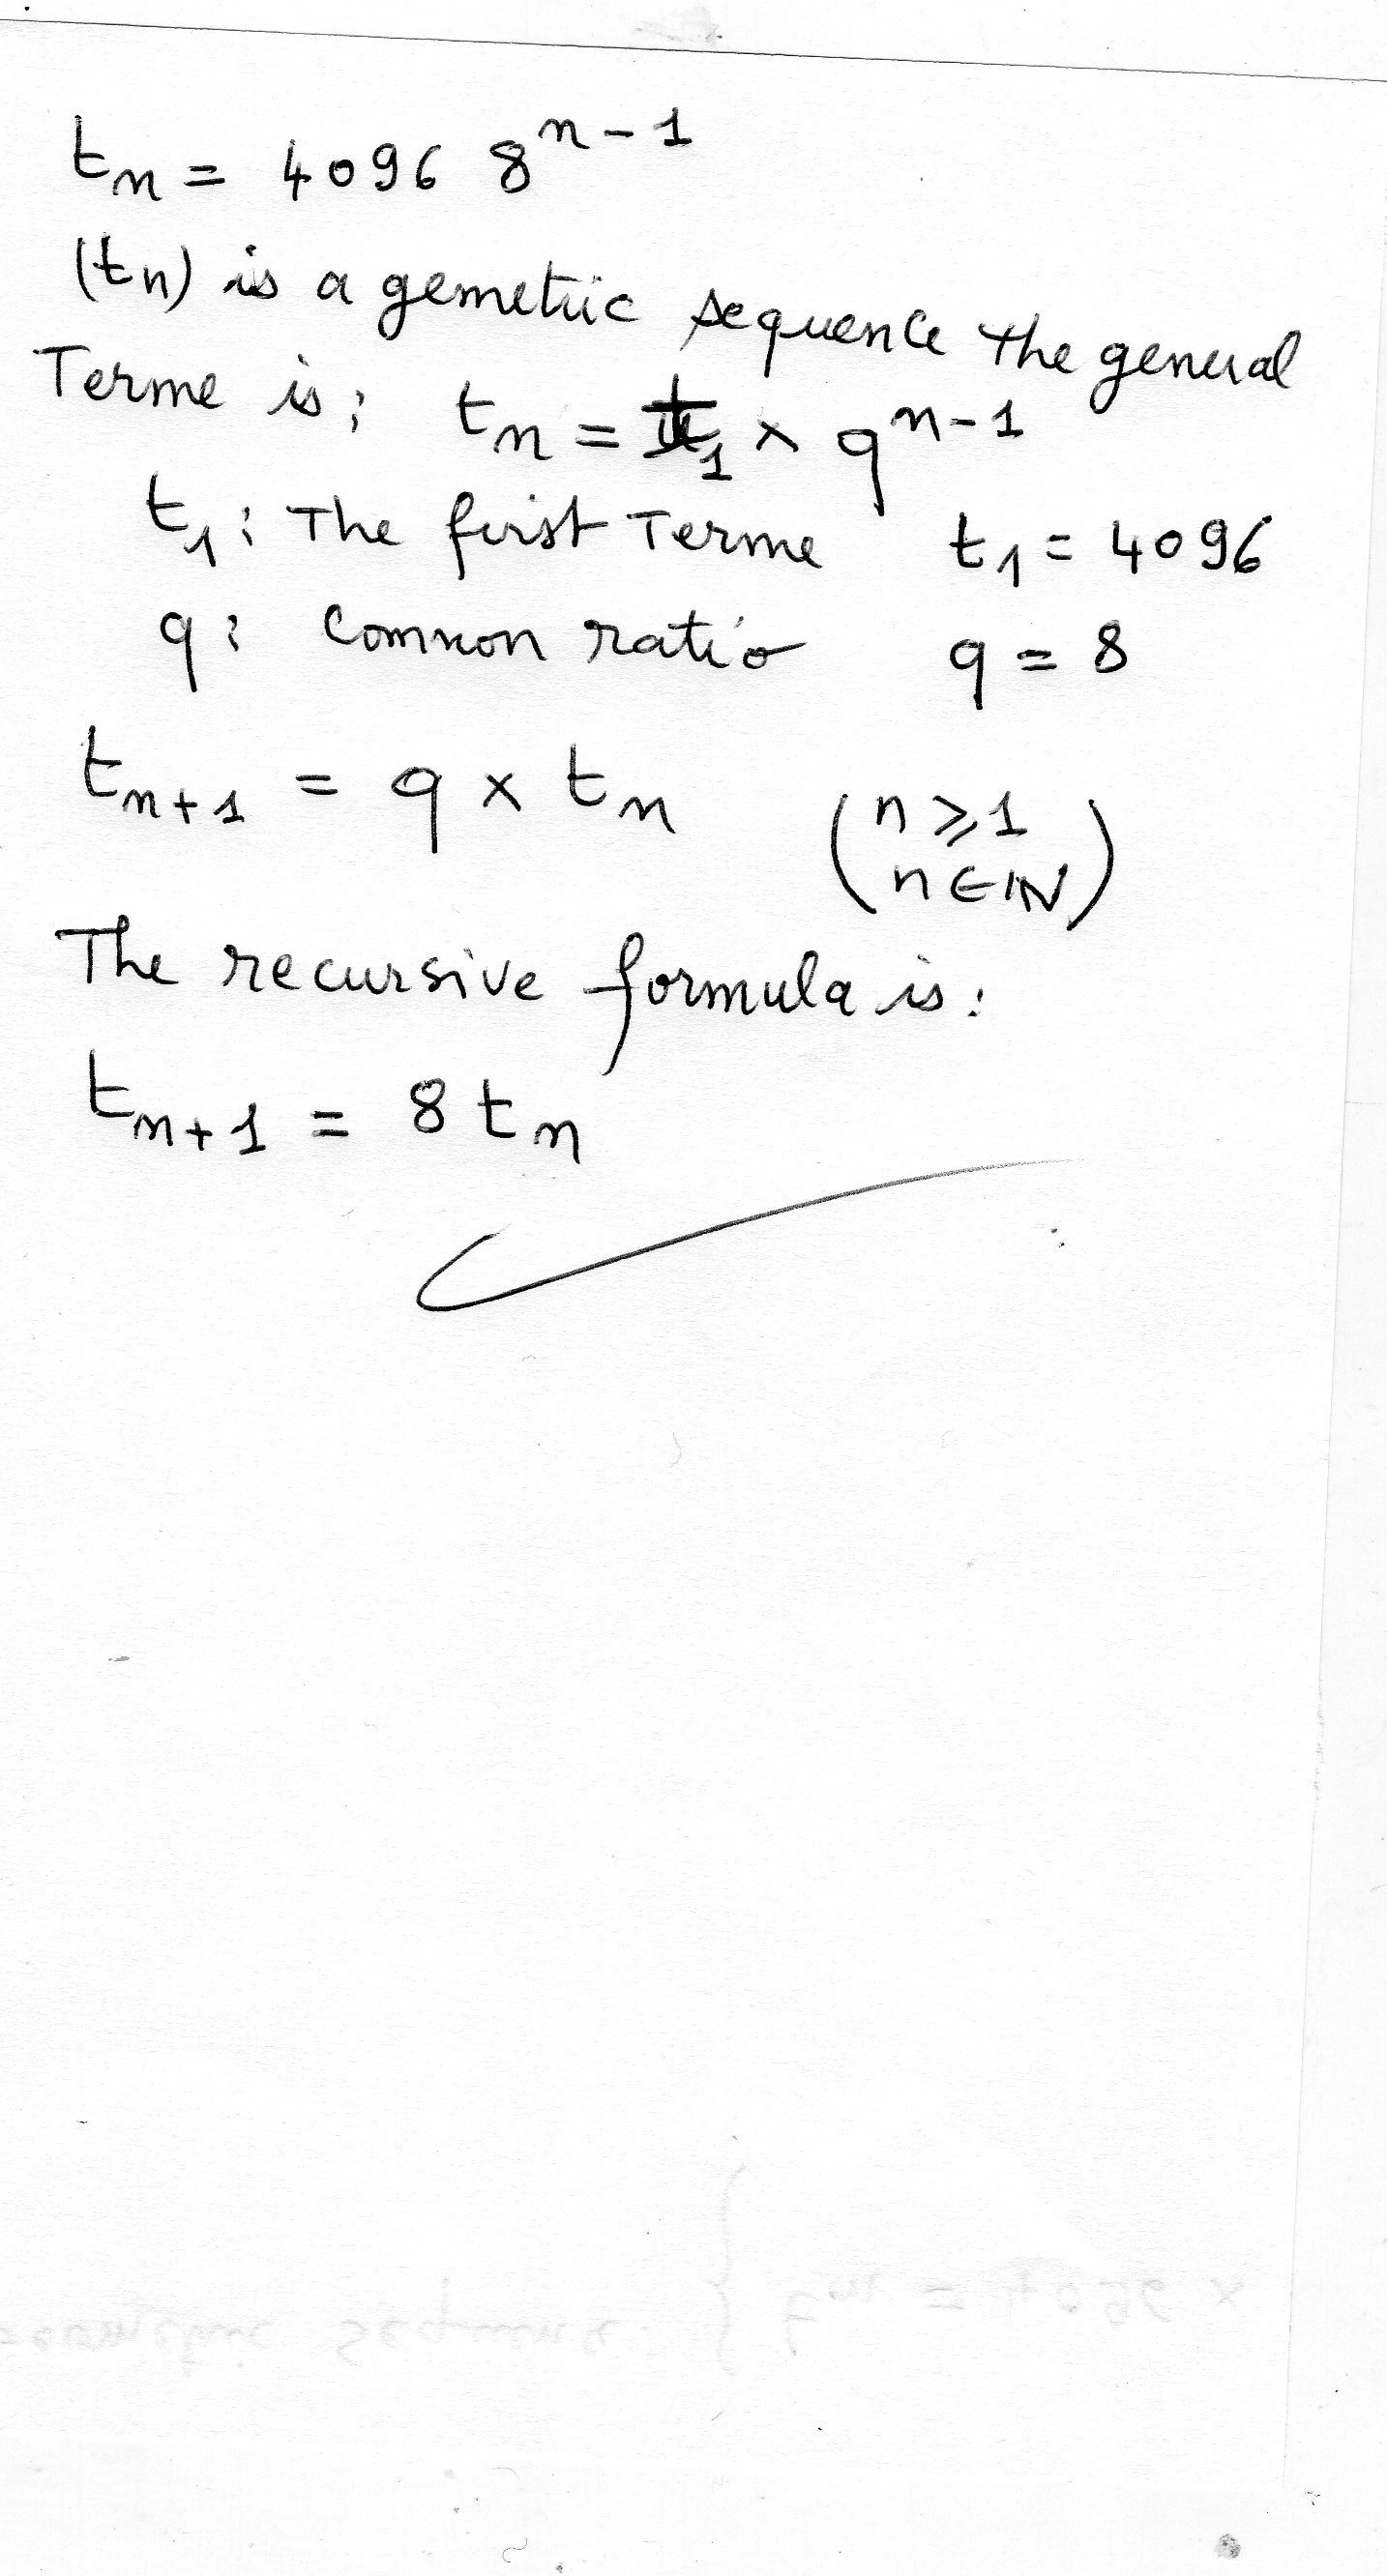 tₙ = 4096 8ⁿ⁻¹
(tn) is a gemetric sequence the general
Terme is: tₙ = t₁ × qⁿ⁻¹
t₁: The first Terme t₁ = 4096
q: common ratio q = 8
tₙ₊₁ = q × tₙ (n ⩾ 1
n ∈ ℕ)
The recursive formula is:
tₙ₊₁ = 8 tₙ